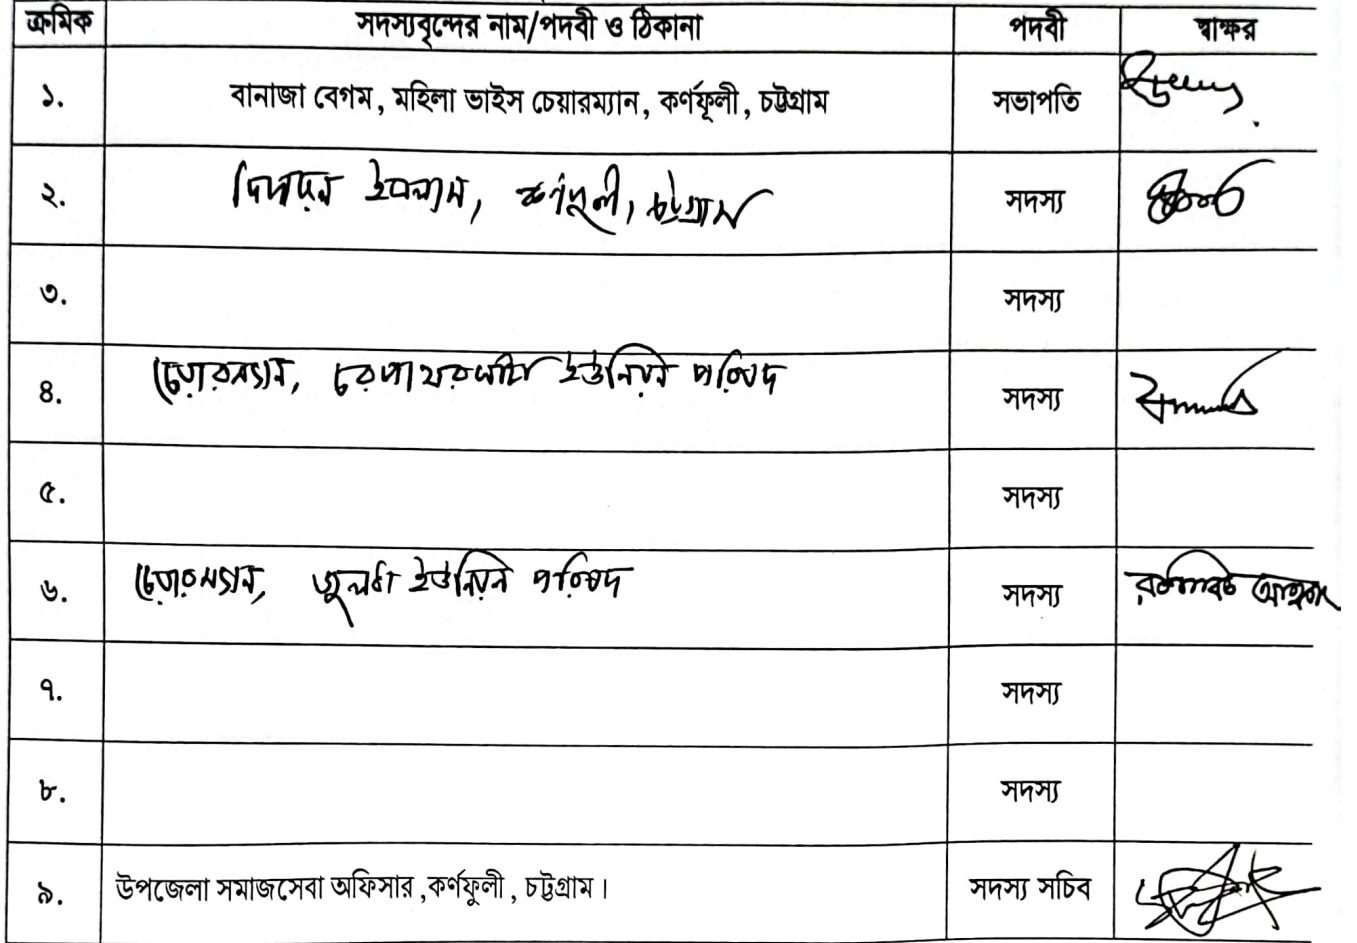 ক্রমিক সদস্যবৃন্দের নাম/পদবী ও ঠিকানা পদবী স্বাক্ষর
১. বানাজা বেগম, মহিলা ভাইস চেয়ারম্যান, কর্ণফূলী, চট্টগ্রাম সভাপতি
২. ইসলাম, কর্ণফুলী, চট্টগ্রাম সদস্য
৩. সদস্য
৪. চেয়ারম্যান, চরপাথরঘাটা ইউনিয়ন পরিষদ সদস্য
৫. সদস্য
৬. চেয়ারম্যান, জুলধা ইউনিয়ন পরিষদ সদস্য
৭. সদস্য
৮. সদস্য
৯. উপজেলা সমাজসেবা অফিসার ,কর্ণফুলী , চট্টগ্রাম। সদস্য সচিব